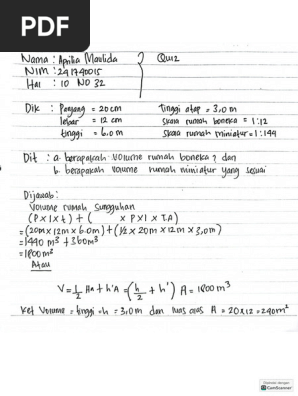 PDF
Nama : Aprilia Maulida Quiz
NIM : 241740015
Hal : 10 NO 32
Dik : Panjang = 20 cm Tinggi atap = 3,0 m
lebar = 12 cm Skala rumah boneka = 1:12
tinggi = 6.0 m Skala rumah miniatur = 1:144
Dit : a. berapakah volume rumah boneka ? dan
b. berapakah volume rumah miniatur yang sesuai
Dijawab :
Volume rumah sungguhan
(P x l x t) + ( x P x l x T.A)
= (20m x 12m x 6.0m) + (1/2 x 20m x 12m x 3,0m)
= 1440 m³ + 360m³
= 1800m³
Atau
V = 1/2 HA + h'A = (h/2 + h') A = 1800 m³
Ket Volume = tinggi = h = 3,0m dan luas alas A = 20x12 = 240m²
CamScanner